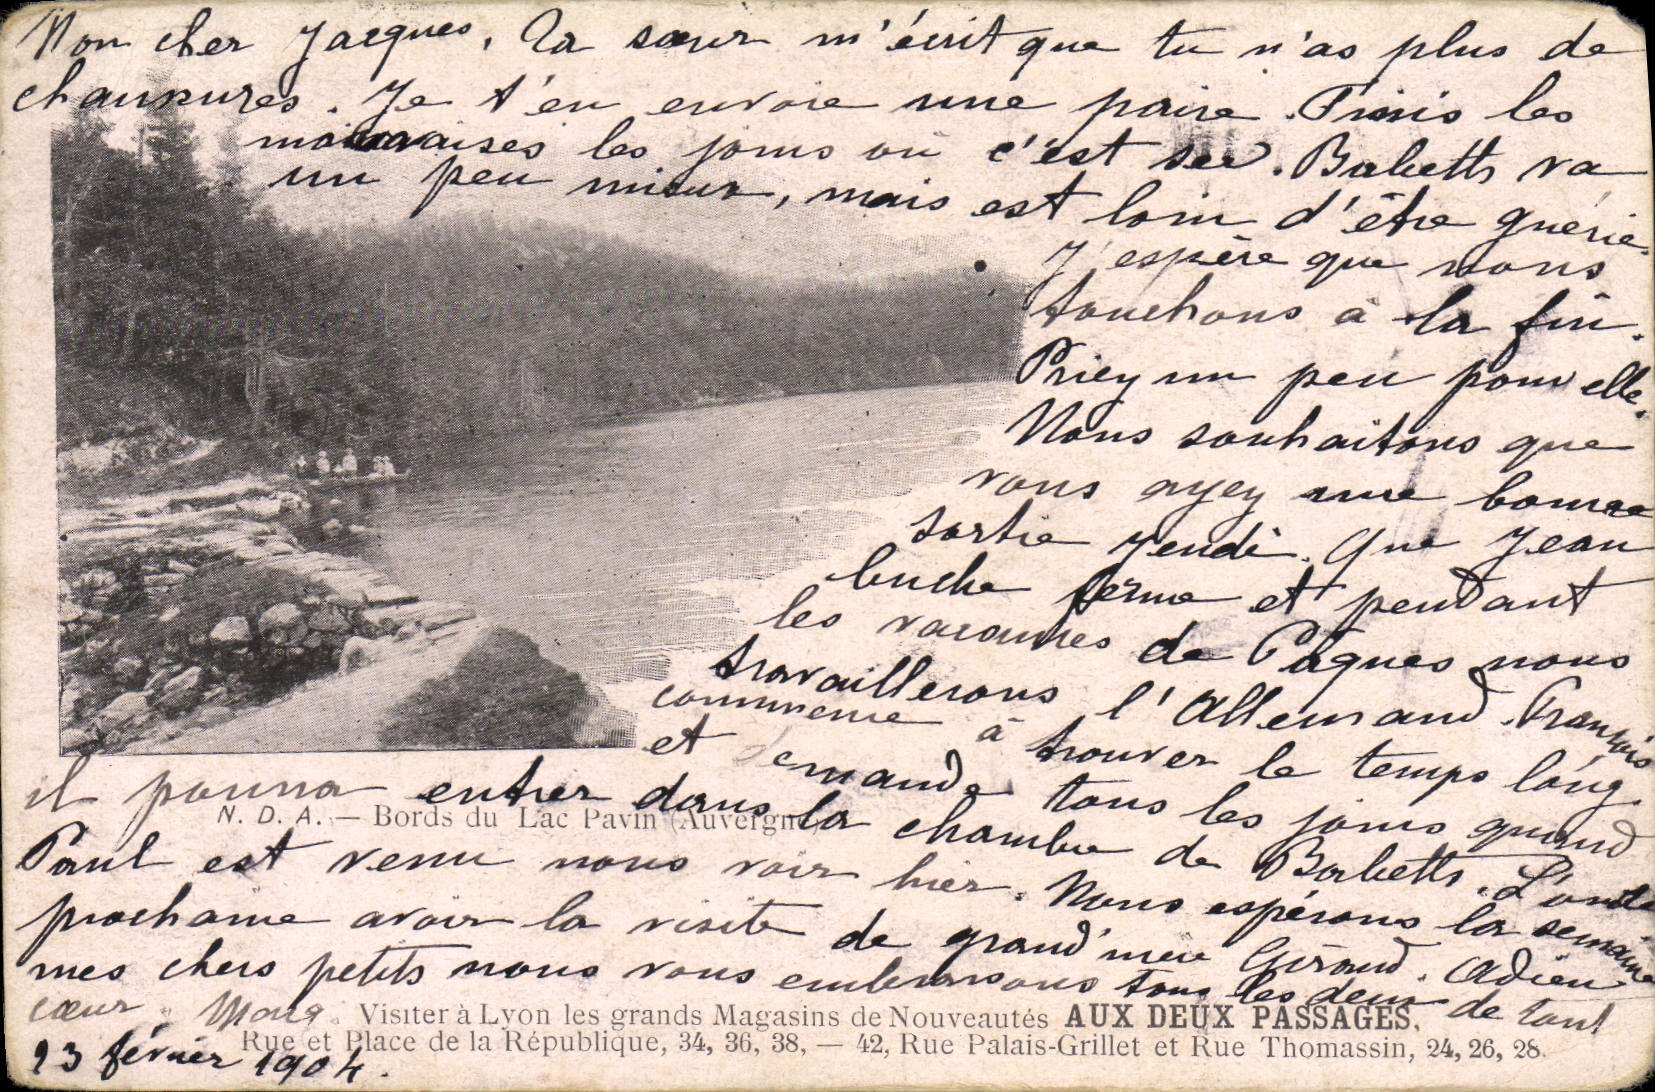 Mon cher Jacques, Ta sœur m'écrit que tu n'as plus de
chaussures. Je t'en envoie une paire. Finis les
mauvaises les jours où c'est sec. Babeth va
un peu mieux, mais est loin d'être guérie.
J'espère que nous
touchons à la fin.
Priez un peu pour elle.
Nous souhaitons que
vous ayez une bonne
sortie jeudi. Que Jean
buche ferme et pendant
les vacances de Pâques nous
travaillerons l'Allemand. François
commence à trouver le temps long
et demande tous les jours quand
il pourra entrer dans la chambre de Babeth. L'oncle
N. D. A. — Bords du Lac Pavin (Auvergne)
Paul est venu nous voir hier. Nous espérons la semaine
prochaine avoir la visite de grand'mère Giraud. Adieu
mes chers petits nous vous embrassons tous les deux de tout
cœur.
Visiter à Lyon les grands Magasins de Nouveautés AUX DEUX PASSAGES,
Rue et Place de la République, 34, 36, 38, — 42, Rue Palais-Grillet et Rue Thomassin, 24, 26, 28.
23 février 1904.